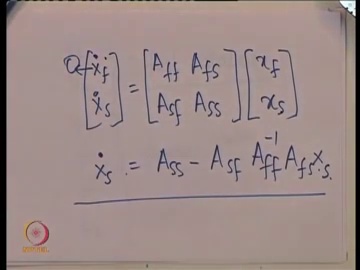 0 [ẋ_f ẋ_s] = [A_ff A_fs A_sf A_ss] [x_f x_s]
ẋ_s = A_ss − A_sf A_ff^{-1} A_fs x_s
NPTEL